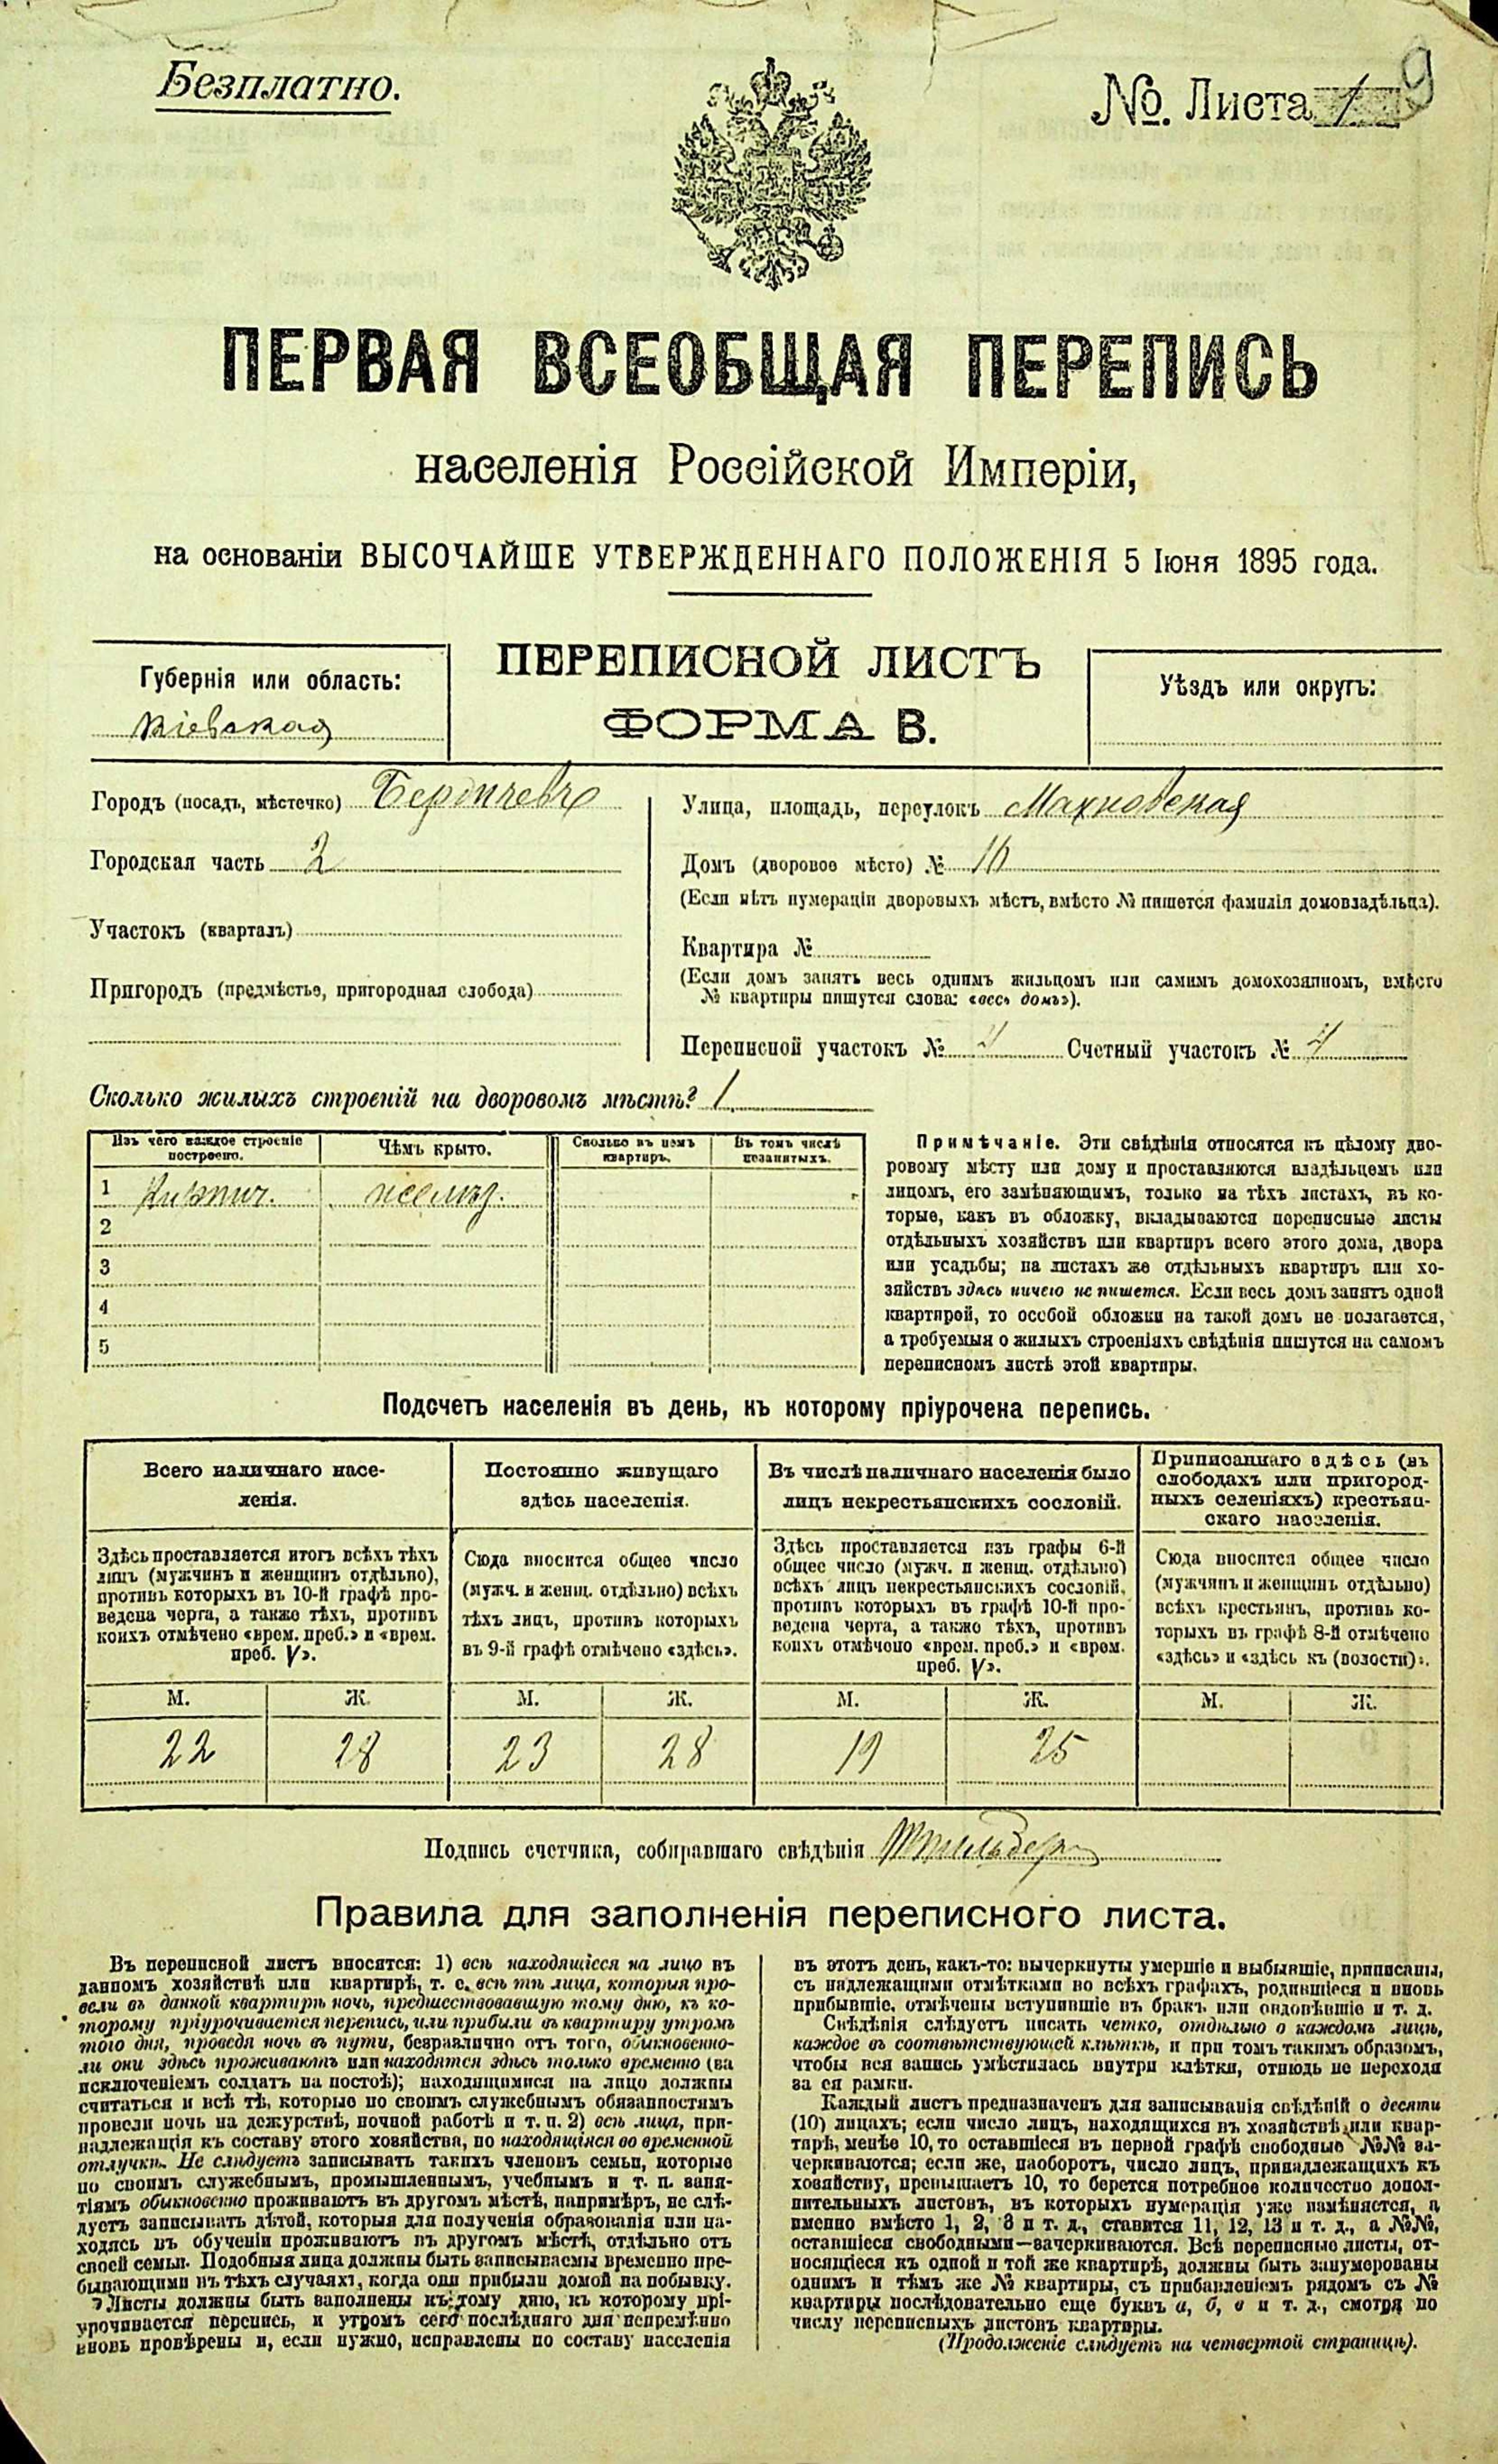 Безплатно.
№. Листа 1 9
ПЕРВАЯ ВСЕОБЩАЯ ПЕРЕПИСЬ
населенія Россійской Имперіи,
на основаніи ВЫСОЧАЙШЕ УТВЕРЖДЕННАГО ПОЛОЖЕНІЯ 5 Іюня 1895 года.
ПЕРЕПИСНОЙ ЛИСТЪ
ФОРМА В.
Губернія или область:
Кіевская
Уѣздъ или округъ:
Городъ (посадъ, мѣстечко) Бердичевъ
Городская часть 2
Участокъ (кварталъ)
Пригородъ (предмѣстье, пригородная слобода)
Улица, площадь, переулокъ Махновская
Домъ (дворовое мѣсто) № 16
(Если нѣтъ нумераціи дворовыхъ мѣстъ, вмѣсто № пишется фамилія домовладѣльца).
Квартира №
(Если домъ занятъ весь однимъ жильцомъ или самимъ домохозяиномъ, вмѣсто
№ квартиры пишутся слова: «весь домъ»).
Переписной участокъ № 4 Счетный участокъ № 4
Сколько жилыхъ строеній на дворовомъ мѣстѣ? 1
Изъ чего каждое строеніе
построено.
Чѣмъ крыто.
Сколько въ немъ
квартиръ.
Въ томъ числѣ
незанятыхъ.
1 Кирпич.
2
3
4
5
Примѣчаніе. Эти свѣдѣнія относятся къ цѣлому дво-
ровому мѣсту или дому и проставляются владѣльцемъ или
лицомъ, его замѣняющимъ, только на тѣхъ листахъ, въ ко-
торые, какъ въ обложку, вкладываются переписные листы
отдѣльныхъ хозяйствъ или квартиръ всего этого дома, двора
или усадьбы; на листахъ же отдѣльныхъ квартиръ или хо-
зяйствъ здѣсь ничего не пишется. Если весь домъ занятъ одной
квартирой, то особой обложки на такой домъ не полагается,
а требуемыя о жилыхъ строеніяхъ свѣдѣнія пишутся на самомъ
переписномъ листѣ этой квартиры.
Подсчетъ населенія въ день, къ которому пріурочена перепись.
Всего наличнаго насе-
ленія.
Постоянно живущаго
здѣсь населенія.
Въ числѣ наличнаго населенія было
лицъ некрестьянскихъ сословій.
Приписаннаго здѣсь (въ
слободахъ или пригород-
ныхъ селеніяхъ) крестьян-
скаго населенія.
Здѣсь проставляется итогъ всѣхъ тѣхъ
лицъ (мужчинъ и женщинъ отдѣльно),
противъ которыхъ въ 10-й графѣ про-
ведена черта, а также тѣхъ, противъ
коихъ отмѣчено «врем. преб.» и «врем.
преб. V».
Сюда вносится общее число
(мужч. и женщ. отдѣльно) всѣхъ
тѣхъ лицъ, противъ которыхъ
въ 9-й графѣ отмѣчено «здѣсь».
Здѣсь проставляется изъ графы 6-й
общее число (мужч. и женщ. отдѣльно)
всѣхъ лицъ некрестьянскихъ сословій,
противъ которыхъ въ графѣ 10-й про-
ведена черта, а также тѣхъ, противъ
коихъ отмѣчено «врем. преб.» и «врем.
преб. V».
Сюда вносится общее число
(мужчинъ и женщинъ отдѣльно)
всѣхъ крестьянъ, противъ ко-
торыхъ въ графѣ 8-й отмѣчено
«здѣсь» и «здѣсь къ (волости)».
М. Ж. М. Ж. М. Ж. М. Ж.
22 28 23 28 19 25
Подпись счетчика, собиравшаго свѣдѣнія
Правила для заполненія переписного листа.
Въ переписной листъ вносятся: 1) всѣ находящіеся на лицо въ
данномъ хозяйствѣ или квартирѣ, т. е. всѣ тѣ лица, которыя про-
вели въ данной квартирѣ ночь, предшествовавшую тому дню, къ ко-
торому пріурочивается перепись, или прибыли въ квартиру утромъ
того дня, проведя ночь въ пути, безразлично отъ того, обыкновенно-
ли они здѣсь проживаютъ или находятся здѣсь только временно (за
исключеніемъ солдатъ на постоѣ); находящимися на лицо должны
считаться и всѣ тѣ, которые по своимъ служебнымъ обязанностямъ
провели ночь на дежурствѣ, ночной работѣ и т. п. 2) всѣ лица, при-
надлежащія къ составу этого хозяйства, но находящіяся во временной
отлучкѣ. Не слѣдуетъ записывать такихъ членовъ семьи, которые
по своимъ служебнымъ, промышленнымъ, учебнымъ и т. п. заня-
тіямъ обыкновенно проживаютъ въ другомъ мѣстѣ, напримѣръ, не слѣ-
дуетъ записывать дѣтей, которыя для полученія образованія или на-
ходясь въ обученіи проживаютъ въ другомъ мѣстѣ, отдѣльно отъ
своей семьи. Подобныя лица должны быть записываемы временно пре-
бывающими въ тѣхъ случаяхъ, когда они прибыли домой на побывку.
Листы должны быть заполнены къ тому дню, къ которому прі-
урочивается перепись, и утромъ сего послѣдняго дня непремѣнно
вновь провѣрены и, если нужно, исправлены по составу населенія
въ этотъ день, какъ-то: вычеркнуты умершіе и выбывшіе, приписаны,
съ надлежащими отмѣтками во всѣхъ графахъ, родившіеся и вновь
прибывшіе, отмѣчены вступившіе въ бракъ или овдовѣвшіе и т. д.
Свѣдѣнія слѣдуетъ писать четко, отдѣльно о каждомъ лицѣ,
каждое въ соотвѣтствующей клѣткѣ, и при томъ такимъ образомъ,
чтобы вся запись умѣстилась внутри клѣтки, отнюдь не переходя
за ея рамки.
Каждый листъ предназначенъ для записыванія свѣдѣній о десяти
(10) лицахъ; если число лицъ, находящихся въ хозяйствѣ или квар-
тирѣ, менѣе 10, то оставшіеся въ первой графѣ свободные №№ за-
черкиваются; если же, наоборотъ, число лицъ, принадлежащихъ къ
хозяйству, превышаетъ 10, то берется потребное количество допол-
нительныхъ листовъ, въ которыхъ нумерація уже измѣняется, а
именно вмѣсто 1, 2, 3 и т. д., ставится 11, 12, 13 и т. д., а №№,
оставшіеся свободными—зачеркиваются. Всѣ переписные листы, от-
носящіеся къ одной и той же квартирѣ, должны быть занумерованы
однимъ и тѣмъ же № квартиры, съ прибавленіемъ рядомъ съ №
квартиры послѣдовательно еще буквъ а, б, в и т. д., смотря по
числу переписныхъ листовъ квартиры.
(Продолженіе слѣдуетъ на четвертой страницѣ).